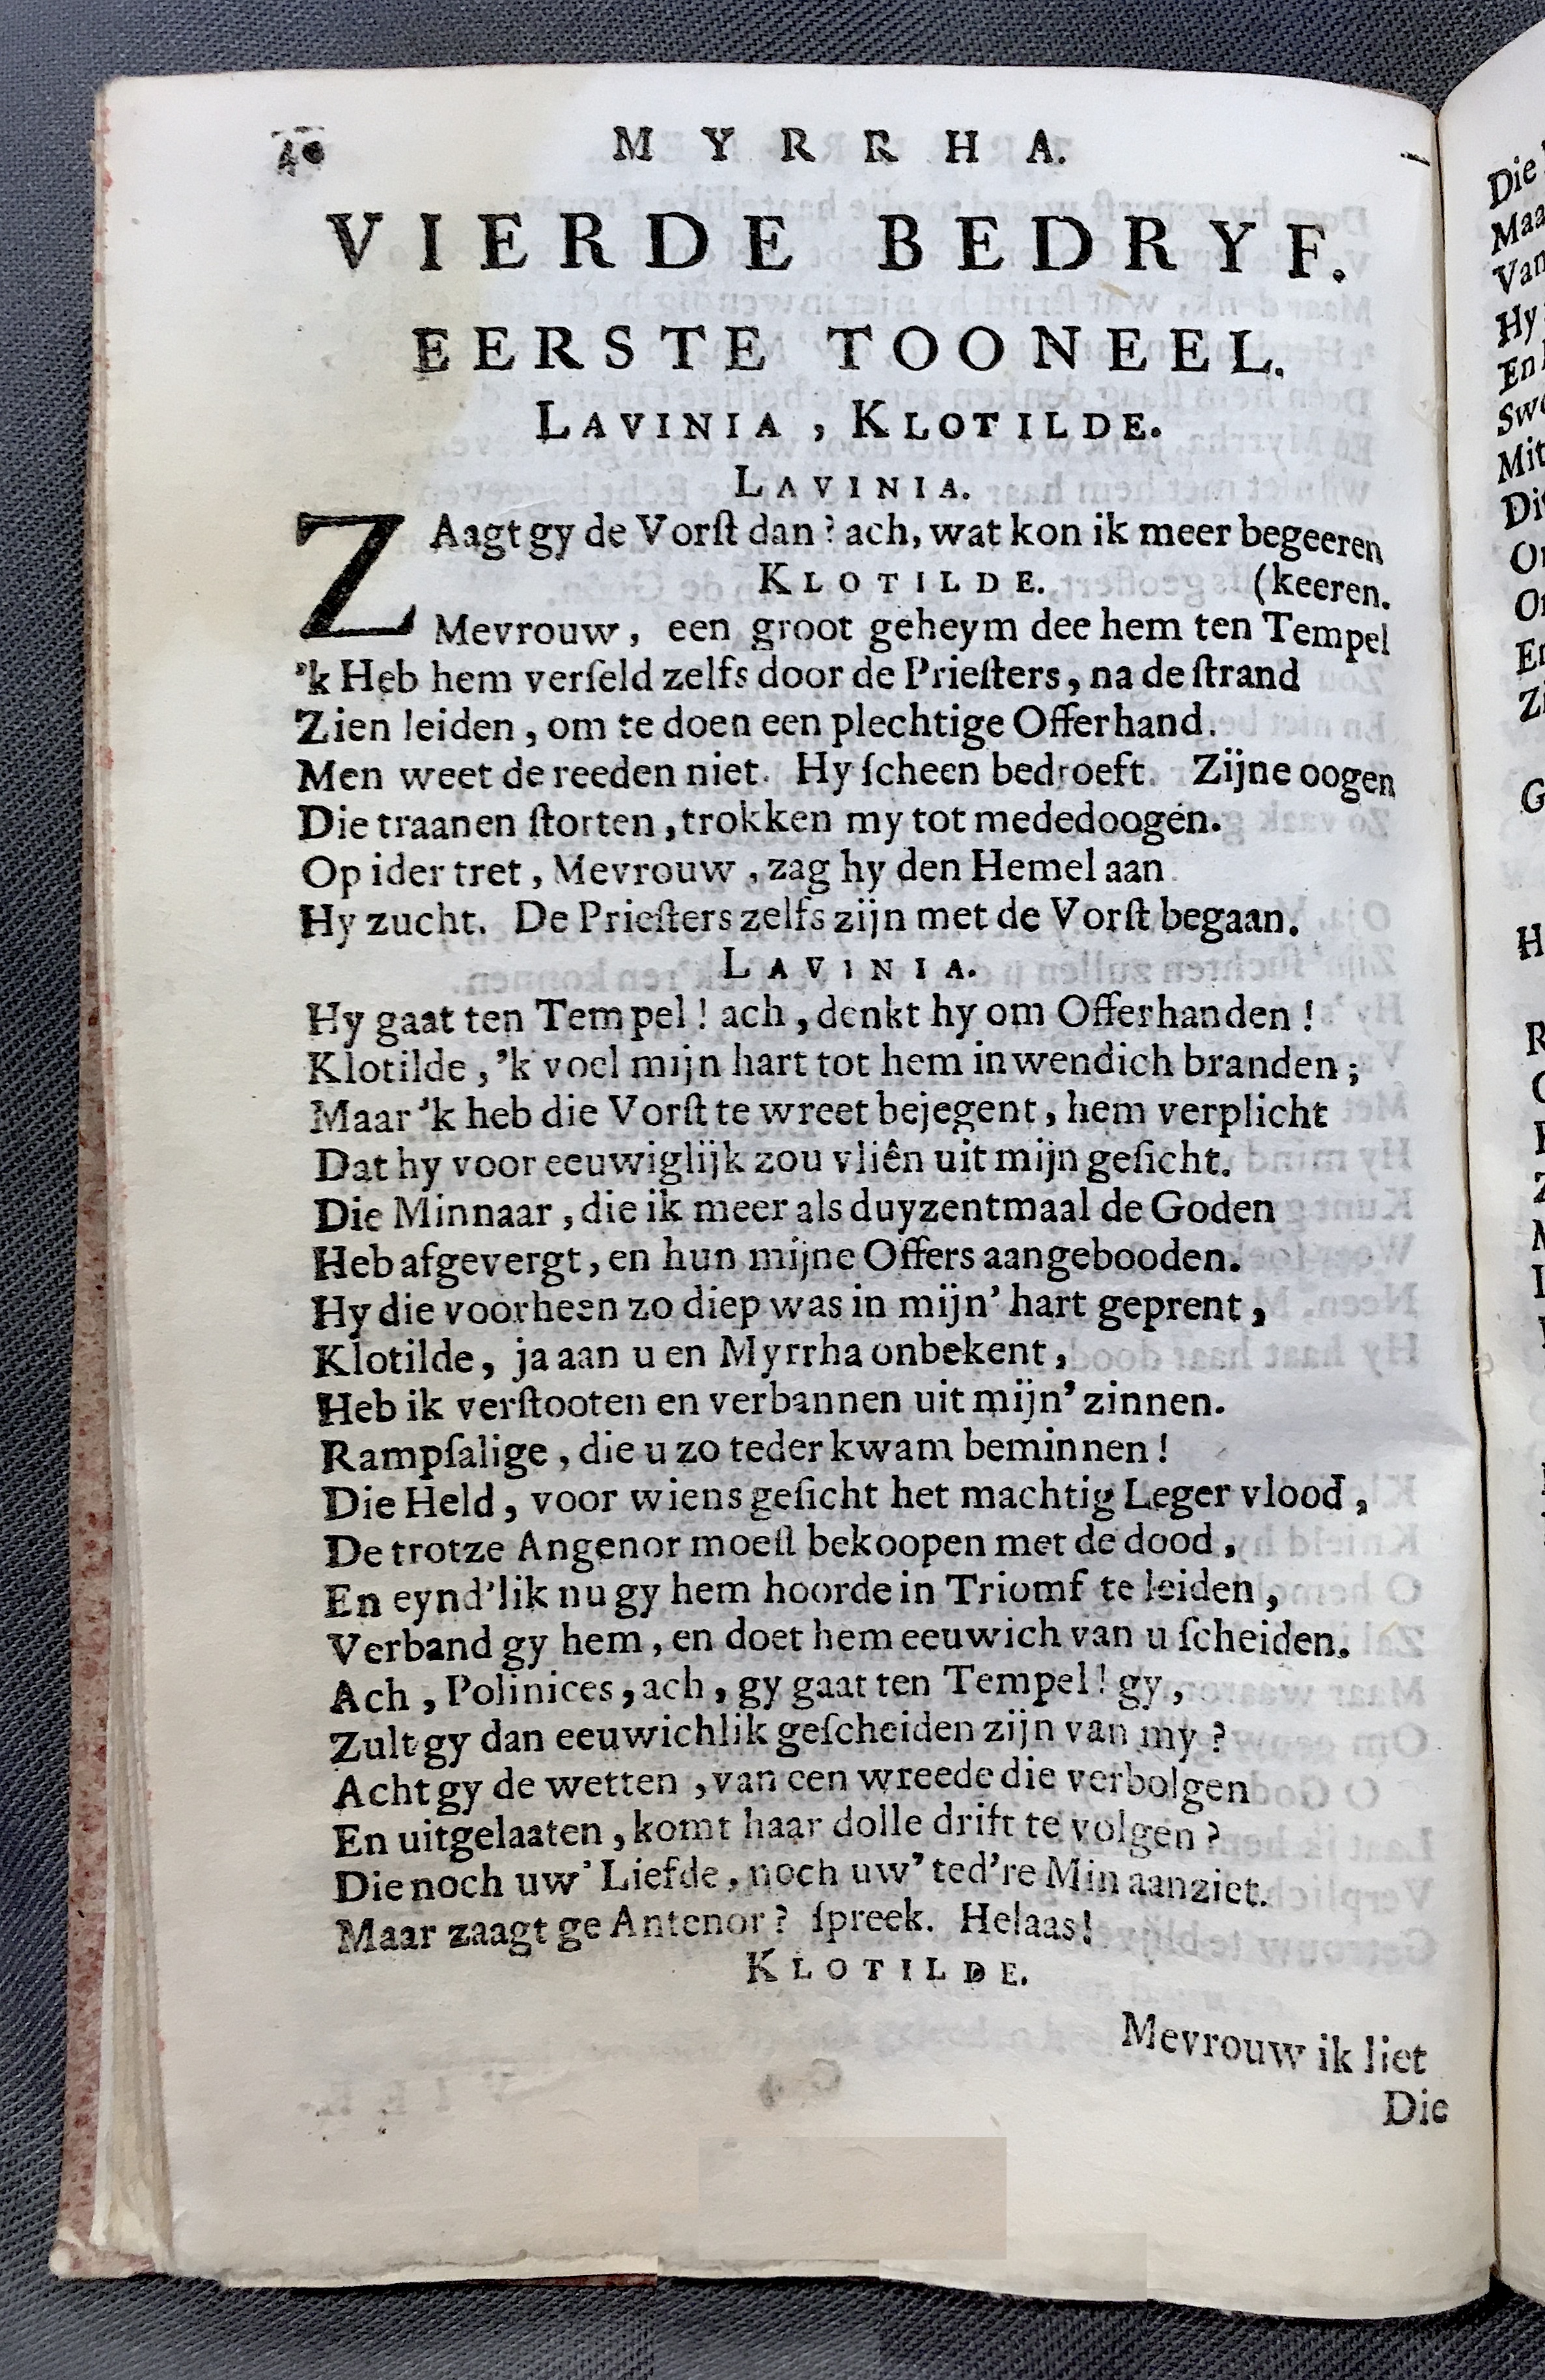 40 MYRRHA.
VIERDE BEDRYF.
EERSTE TOONEEL.
LAVINIA, KLOTILDE.
LAVINIA.
ZAagt gy de Vorſt dan? ach, wat kon ik meer begeeren
KLOTILDE. (keeren.
Mevrouw, een groot geheym dee hem ten Tempel
'k Heb hem verſeld zelfs door de Prieſters, na de ſtrand
Zien leiden, om te doen een plechtige Offerhand.
Men weet de reeden niet. Hy ſcheen bedroeft. Zijne oogen
Die traanen ſtorten, trokken my tot mededoogen.
Op ider tret, Mevrouw, zag hy den Hemel aan.
Hy zucht. De Prieſters zelfs zijn met de Vorſt begaan.
LAVINIA.
Hy gaat ten Tempel! ach, denkt hy om Offerhanden!
Klotilde, 'k voel mijn hart tot hem inwendich branden;
Maar 'k heb die Vorſt te wreet bejegent, hem verplicht
Dat hy voor eeuwiglijk zou vliên uit mijn geſicht.
Die Minnaar, die ik meer als duyzentmaal de Goden
Heb afgevergt, en hun mijne Offers aangebooden.
Hy die voorheen zo diep was in mijn' hart geprent,
Klotilde, ja aan u en Myrrha onbekent,
Heb ik verſtooten en verbannen uit mijn' zinnen.
Rampſalige, die u zo teder kwam beminnen!
Die Held, voor wiens geſicht het machtig Leger vlood,
De trotze Angenor moeſt bekoopen met de dood,
En eynd'lik nu gy hem hoorde in Triomf te leiden,
Verband gy hem, en doet hem eeuwich van u ſcheiden.
Ach, Polinices, ach, gy gaat ten Tempel! gy,
Zult gy dan eeuwichlik geſcheiden zijn van my?
Acht gy de wetten, van een wreede die verbolgen
En uitgelaaten, komt haar dolle drift te volgen?
Die noch uw' Liefde, noch uw' ted're Min aanziet.
Maar zaagt ge Antenor? ſpreek. Helaas!
KLOTILDE.
Mevrouw ik liet
Die